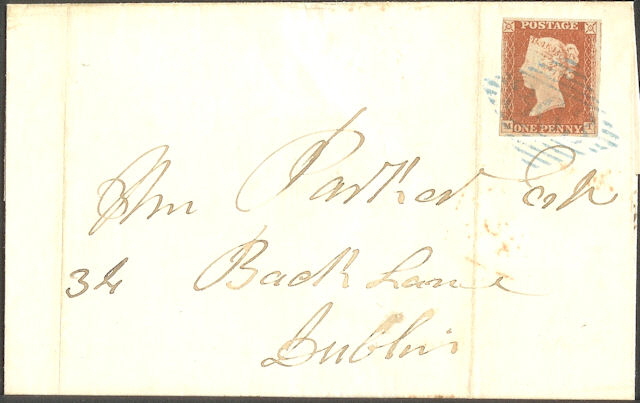 POSTAGE
ONE PENNY
Wm Parker Esq
34 Back Lane
Dublin